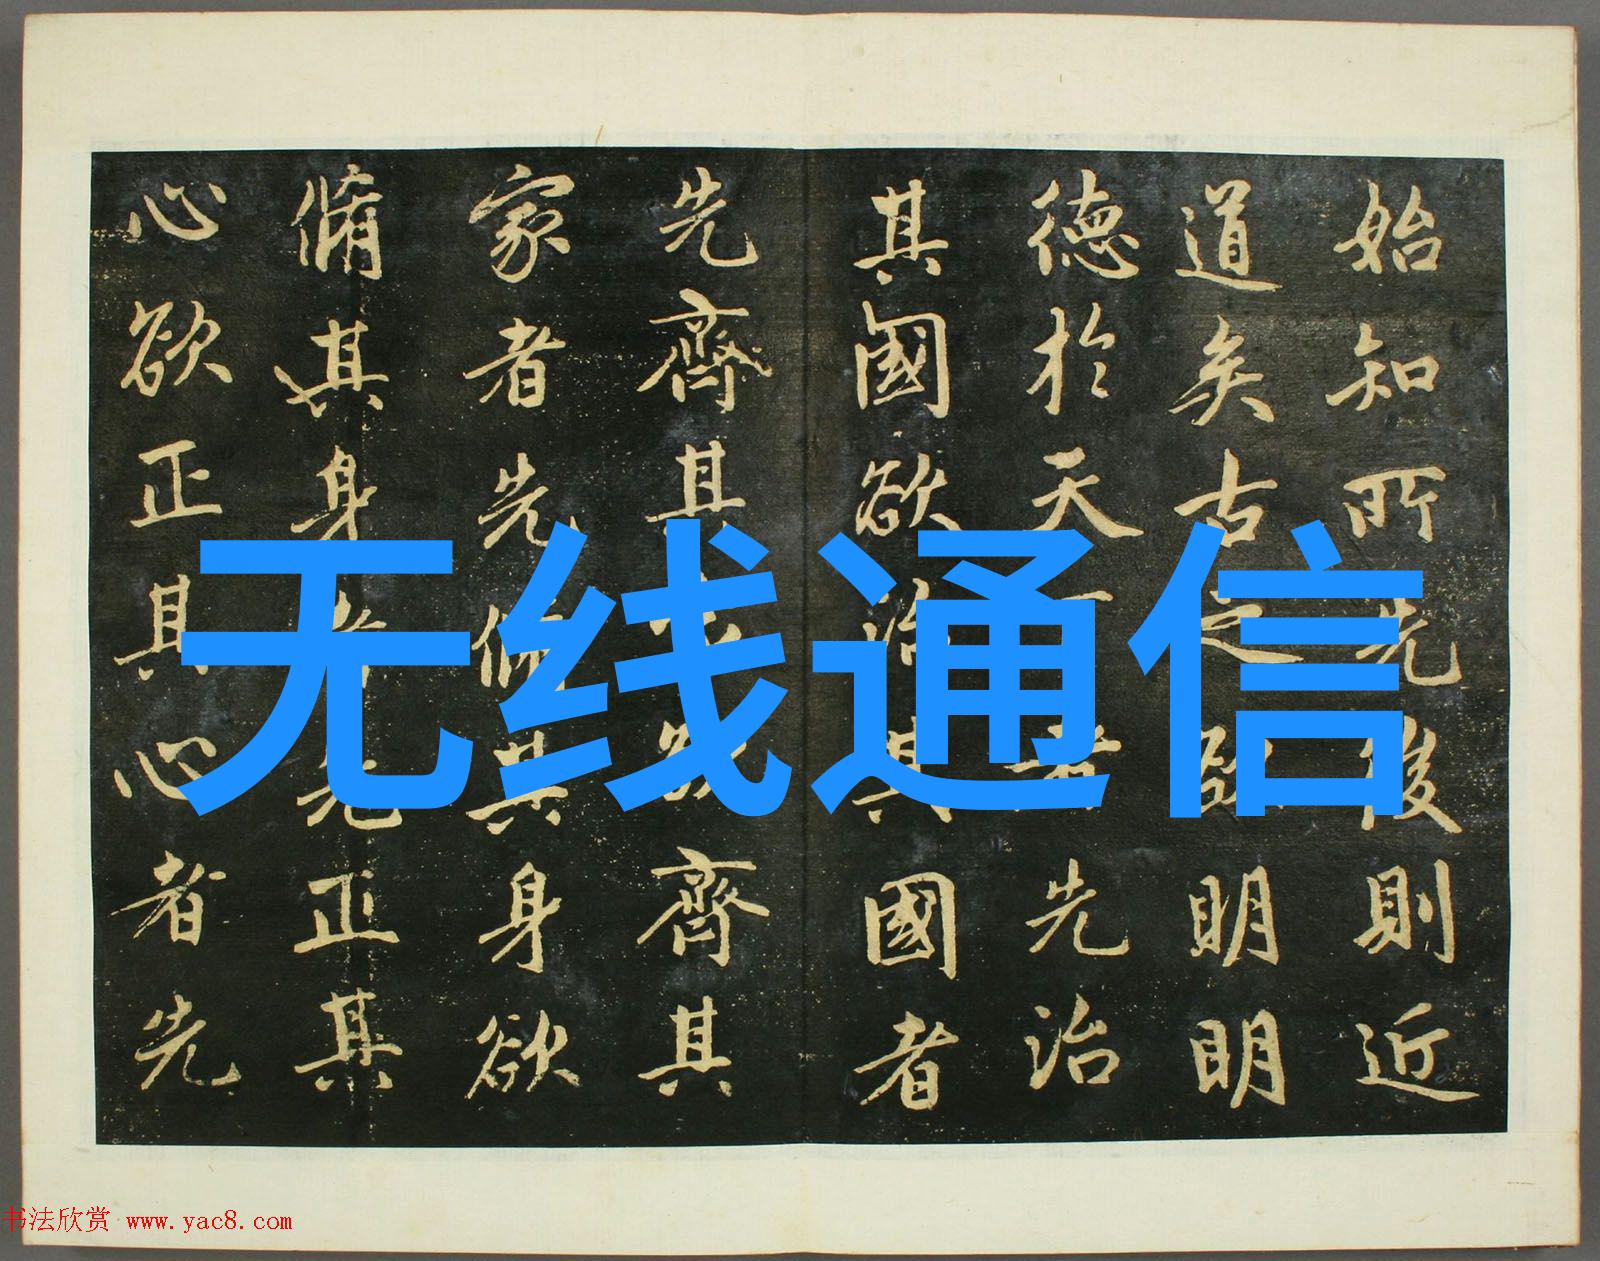 始知所先後則近
道矣古之欲明明
德於天者先治
其國欲治其國者
先齊其欲齊其
家者先修其身欲
脩其身者先正其
心欲正其心者先
无线通信
书法欣赏 www.yac8.com